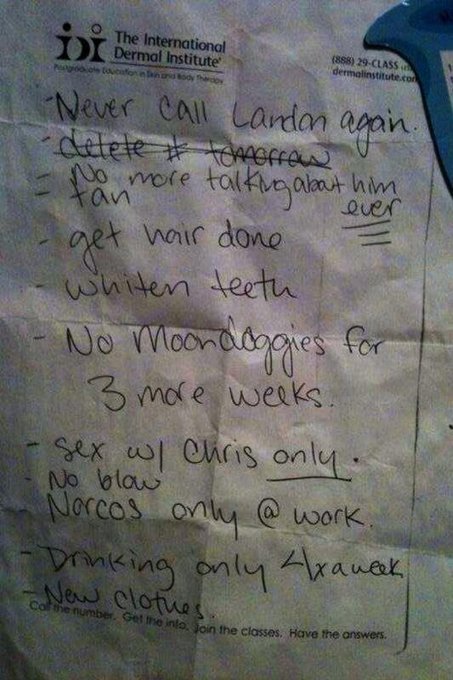 idi The International
Dermal Institute
Postgraduate Education in Skin and Body Therapy
(888) 29-CLASS
dermalinstitute.com
- Never call Landon again.
- delete # tomorrow
- No more talking about him
ever
- tan
- get hair done
- whiten teeth
- No Moondoggies for
3 more weeks.
- sex w/ Chris only.
- No blow
Norcos only @ work.
- Drinking only 4x a week
- New clothes.
Call the number. Get the info. Join the classes. Have the answers.